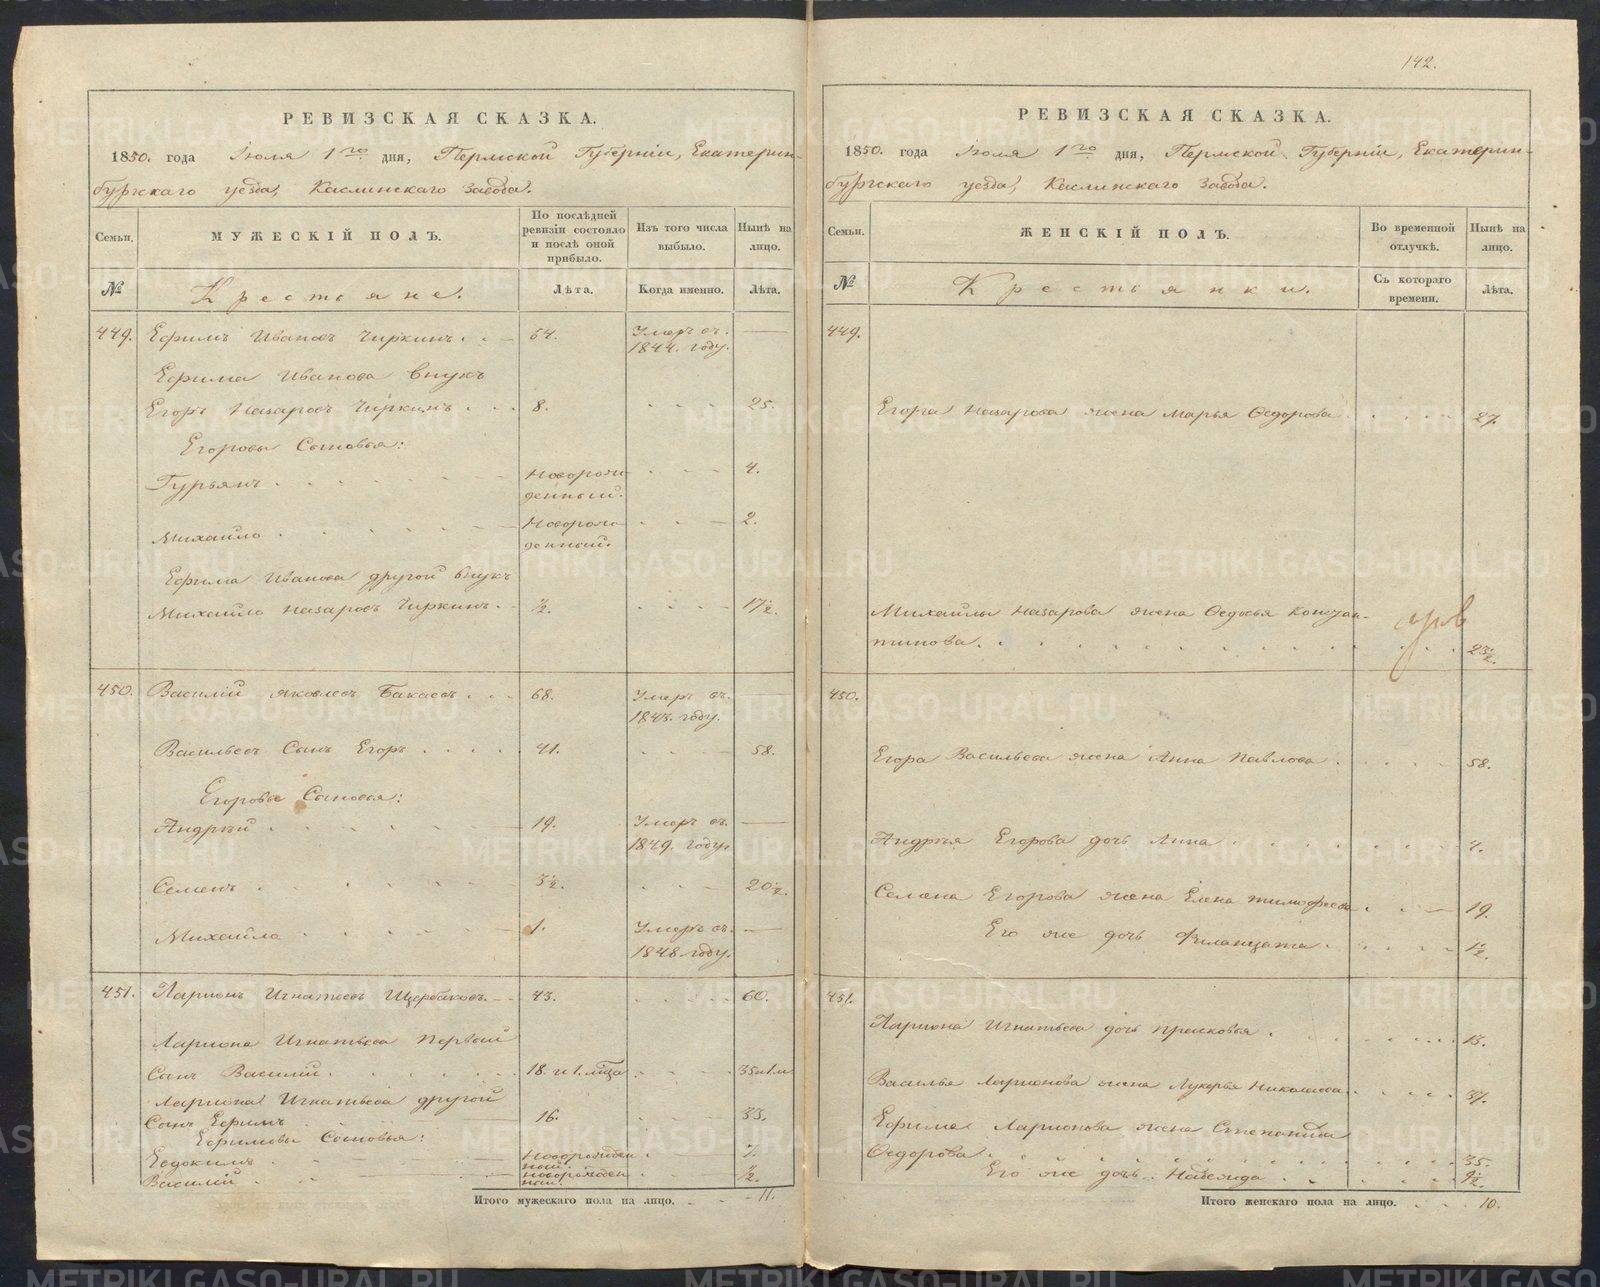 142.
РЕВИЗСКАЯ СКАЗКА.
1850. года Іюля 1го дня, Пермской Губерніи, Екатерин-
бургскаго уезда, Каслинскаго Завода.
Семьи. МУЖЕСКІЙ ПОЛЪ. По послѣдней ревизіи состояло и послѣ оной прибыло. Изъ того числа выбыло. Нынѣ на лицо.
№ Крестьяне. Лѣта. Когда именно. Лѣта.
449. Ефимъ Ивановъ Чиркинъ. 64. Умеръ въ 1844. году.
Ефима Иванова внукъ
Егоръ Назаровъ Чиркинъ 8. 25.
Егоровы Сыновья:
Гурьянъ Новорож- 4.
денный.
Михайло Новорож- 2.
денный.
Ефима Иванова другой внукъ
Михайло Назаровъ Чиркинъ. ½. 17½.
450. Василій Яковлевъ Бакаевъ 68. Умеръ въ
1843. году.
Васильевъ Сынъ Егоръ 41. 58.
Егоровы Сыновья:
Андрей 19. Умеръ въ
1849. году.
Семенъ 3½. 20½.
Михайло 1. Умеръ въ
1848 году.
451. Ларионъ Игнатьевъ Щербаковъ. 43. 60.
Лариона Игнатьева Первый
Сынъ Василий. 18. и 1. мца 35 и 1 м
Лариона Игнатьева другой
Сынъ Ефимъ 16. 33.
Ефимовы Сыновья:
Евдокимъ Новорожден 7.
ный.
Василий новорожден ½.
ный.
Итого мужескаго пола на лицо. 11.
РЕВИЗСКАЯ СКАЗКА.
1850. года Іюля 1го дня, Пермской Губерніи, Екатерин-
бургскаго уезда, Каслинскаго Завода.
Семьи. ЖЕНСКІЙ ПОЛЪ. Во временной отлучкѣ. Нынѣ на лицо.
№ Крестьянки. Съ котораго времени. Лѣта.
449.
Егора Назарова жена Марья Федорова 27.
Михайлы Назарова жена Федосья Констан-
тинова. 23½.
450.
Егора Васильева жена Анна Павлова 58.
Андрея Егорова дочь Анна 4.
Семена Егорова жена Елена Тимофеева 19.
Его же дочь 1½.
451.
Лариона Игнатьева дочь Прасковья 13.
Василья Ларионова жена Лукерья Николаева 37.
Ефима Ларионова жена Степанида
Федорова. 35.
Его же дочь Надежда 9½.
Итого женскаго пола на лицо. 10.
METRIKI.GASO-URAL.RU